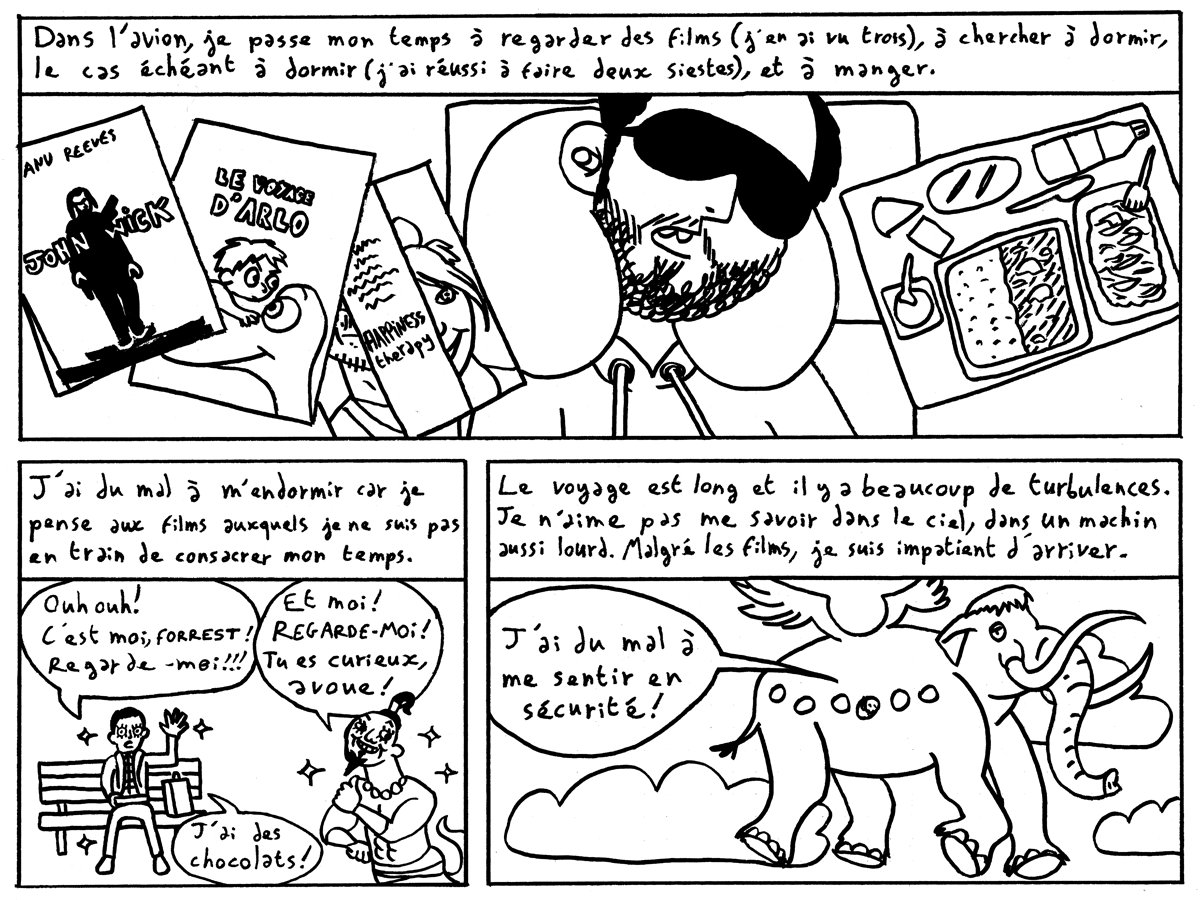 Dans l'avion, je passe mon temps à regarder des films (j'en ai vu trois), à chercher à dormir,
le cas échéant à dormir (j'ai réussi à faire deux siestes), et à manger.
ANU REEVES
JOHN WICK
LE VOYAGE
D'ARLO
HAPPINESS
therapy
J'ai du mal à m'endormir car je
pense aux films auxquels je ne suis pas
en train de consacrer mon temps.
Ouh ouh!
C'est moi, FORREST!
Regarde-moi!!!
Et moi!
REGARDE-MOI!
Tu es curieux,
avoue!
J'ai des
chocolats!
Le voyage est long et il y a beaucoup de turbulences.
Je n'aime pas me savoir dans le ciel, dans un machin
aussi lourd. Malgré les films, je suis impatient d'arriver.
J'ai du mal à
me sentir en
sécurité!